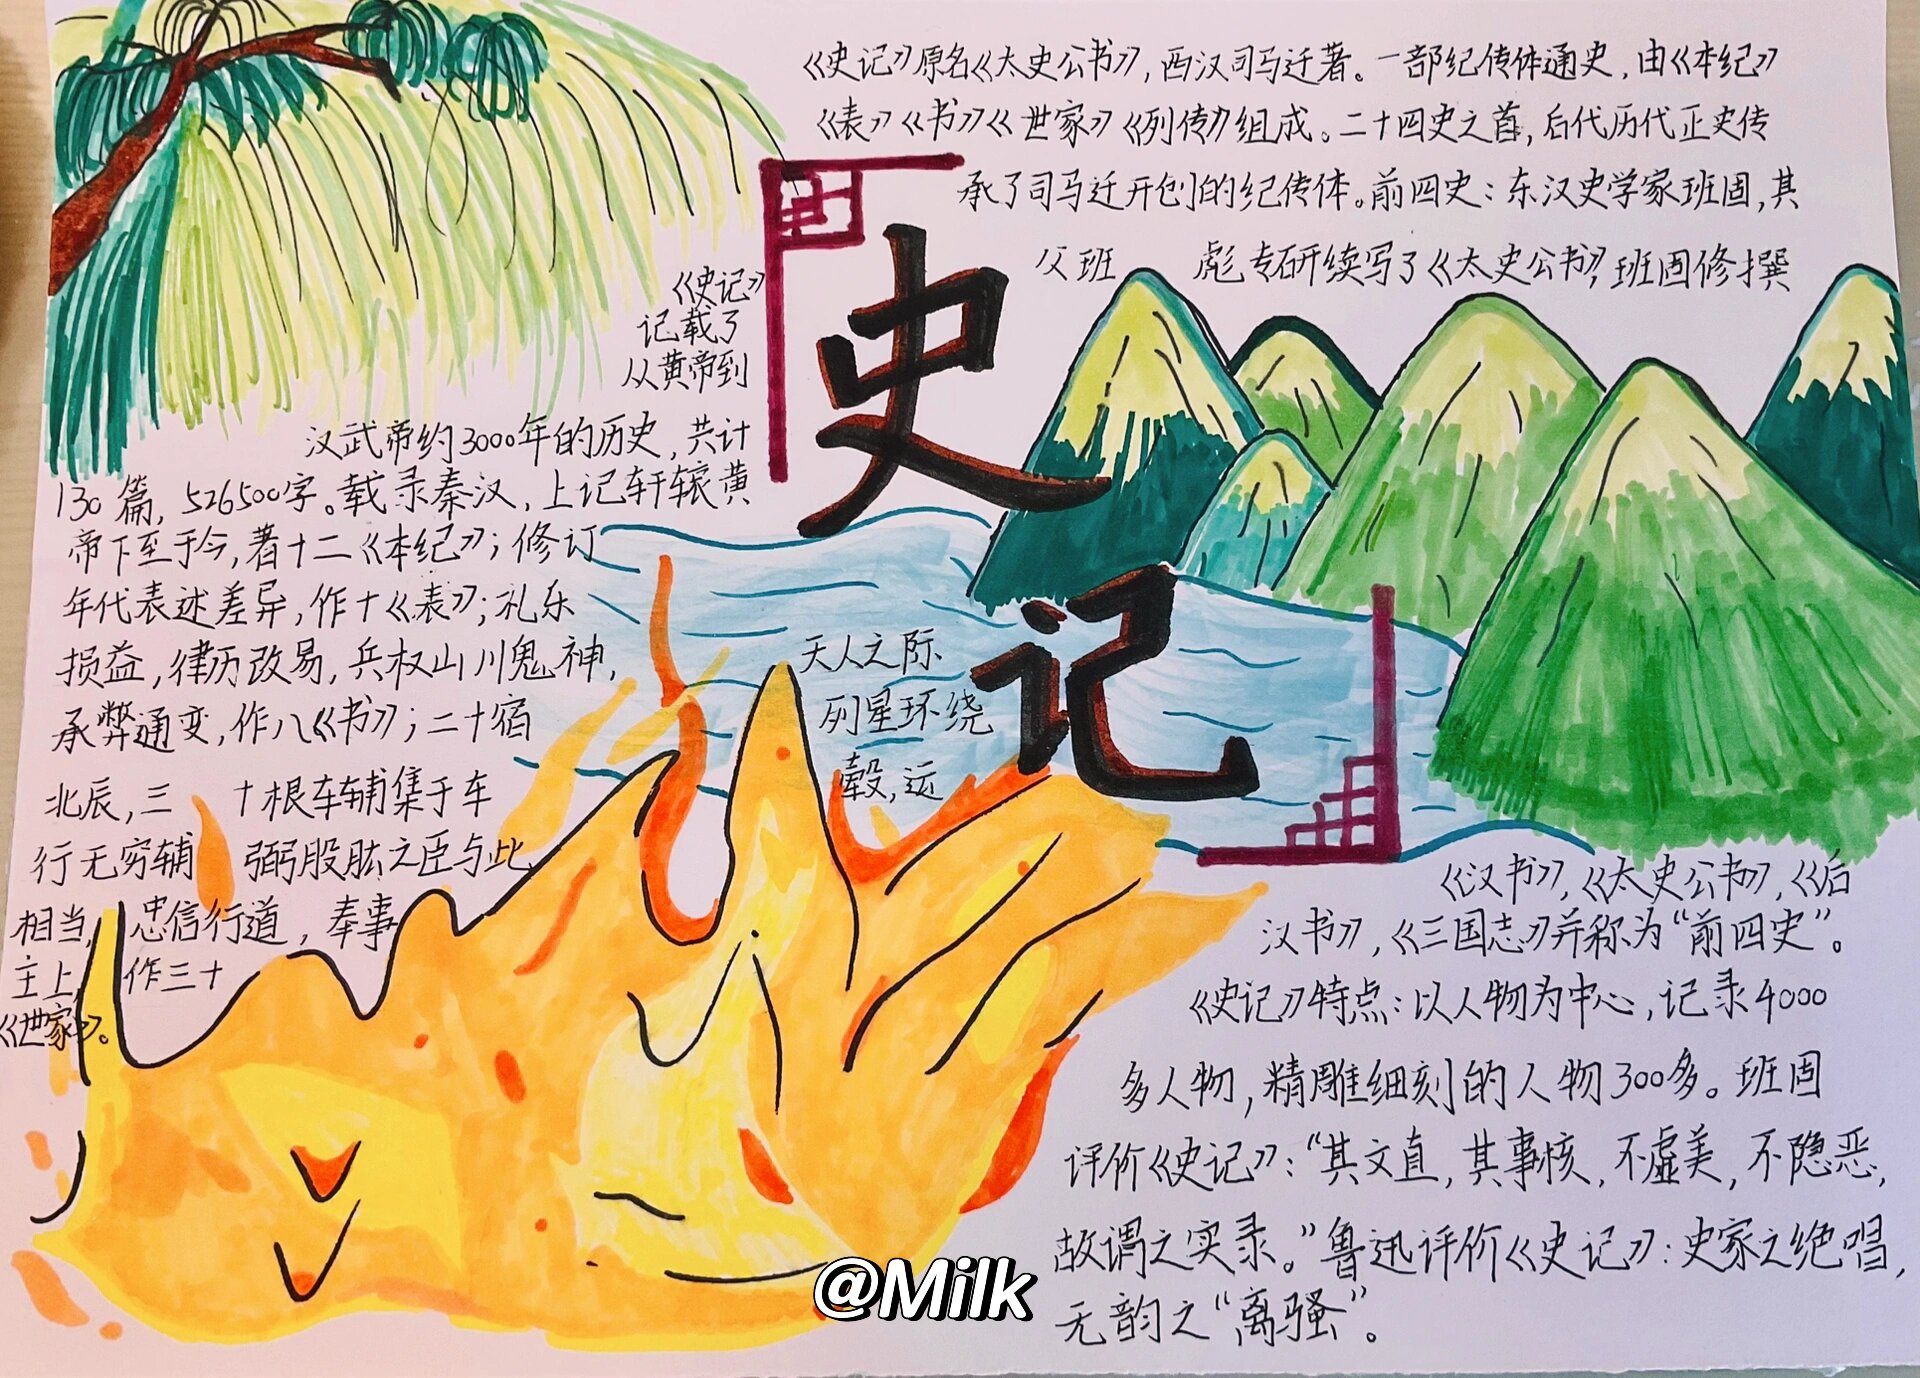 《史记》原名《太史公书》，西汉司马迁著。一部纪传体通史，由《本纪》
《表》《书》《世家》《列传》组成。二十四史之首，后代历代正史传
承了司马迁开创的纪传体。前四史：东汉史学家班固，其
父班 彪专研续写了《太史公书》，班固修撰
史记
《史记》
记载了
从黄帝到
汉武帝约3000年的历史，共计
130篇，526500字。载录秦汉，上记轩辕黄
帝下至于今，著十二《本纪》；修订
年代表述差异，作十《表》；礼乐
损益，律历改易，兵权山川鬼神，
承弊通变，作八《书》；二十宿
北辰，三 十根车辅集于车
行无穷辅 弼股肱之臣与此
相当， 忠信行道，奉事
主上， 作三十
《世家》。
天人之际
列星环绕
毂，运
《汉书》，《太史公书》，《后
汉书》，《三国志》并称为“前四史”。
《史记》特点：以人物为中心，记录4000
多人物，精雕细刻的人物300多。班固
评价《史记》：“其文直，其事核，不虚美，不隐恶，
故谓之实录。”鲁迅评价《史记》：史家之绝唱，
无韵之“离骚”。
@Milk